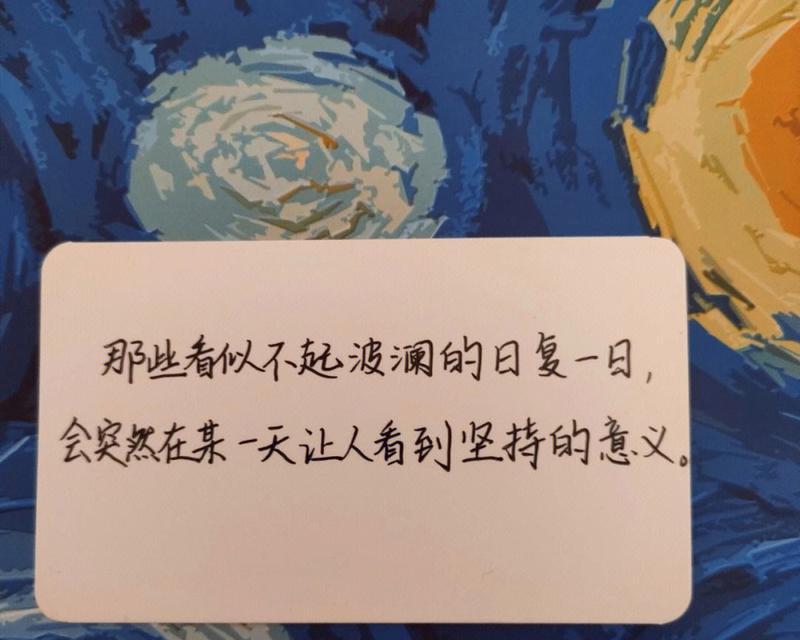 那些看似不起波澜的日复一日,
会突然在某一天让人看到坚持的意义。